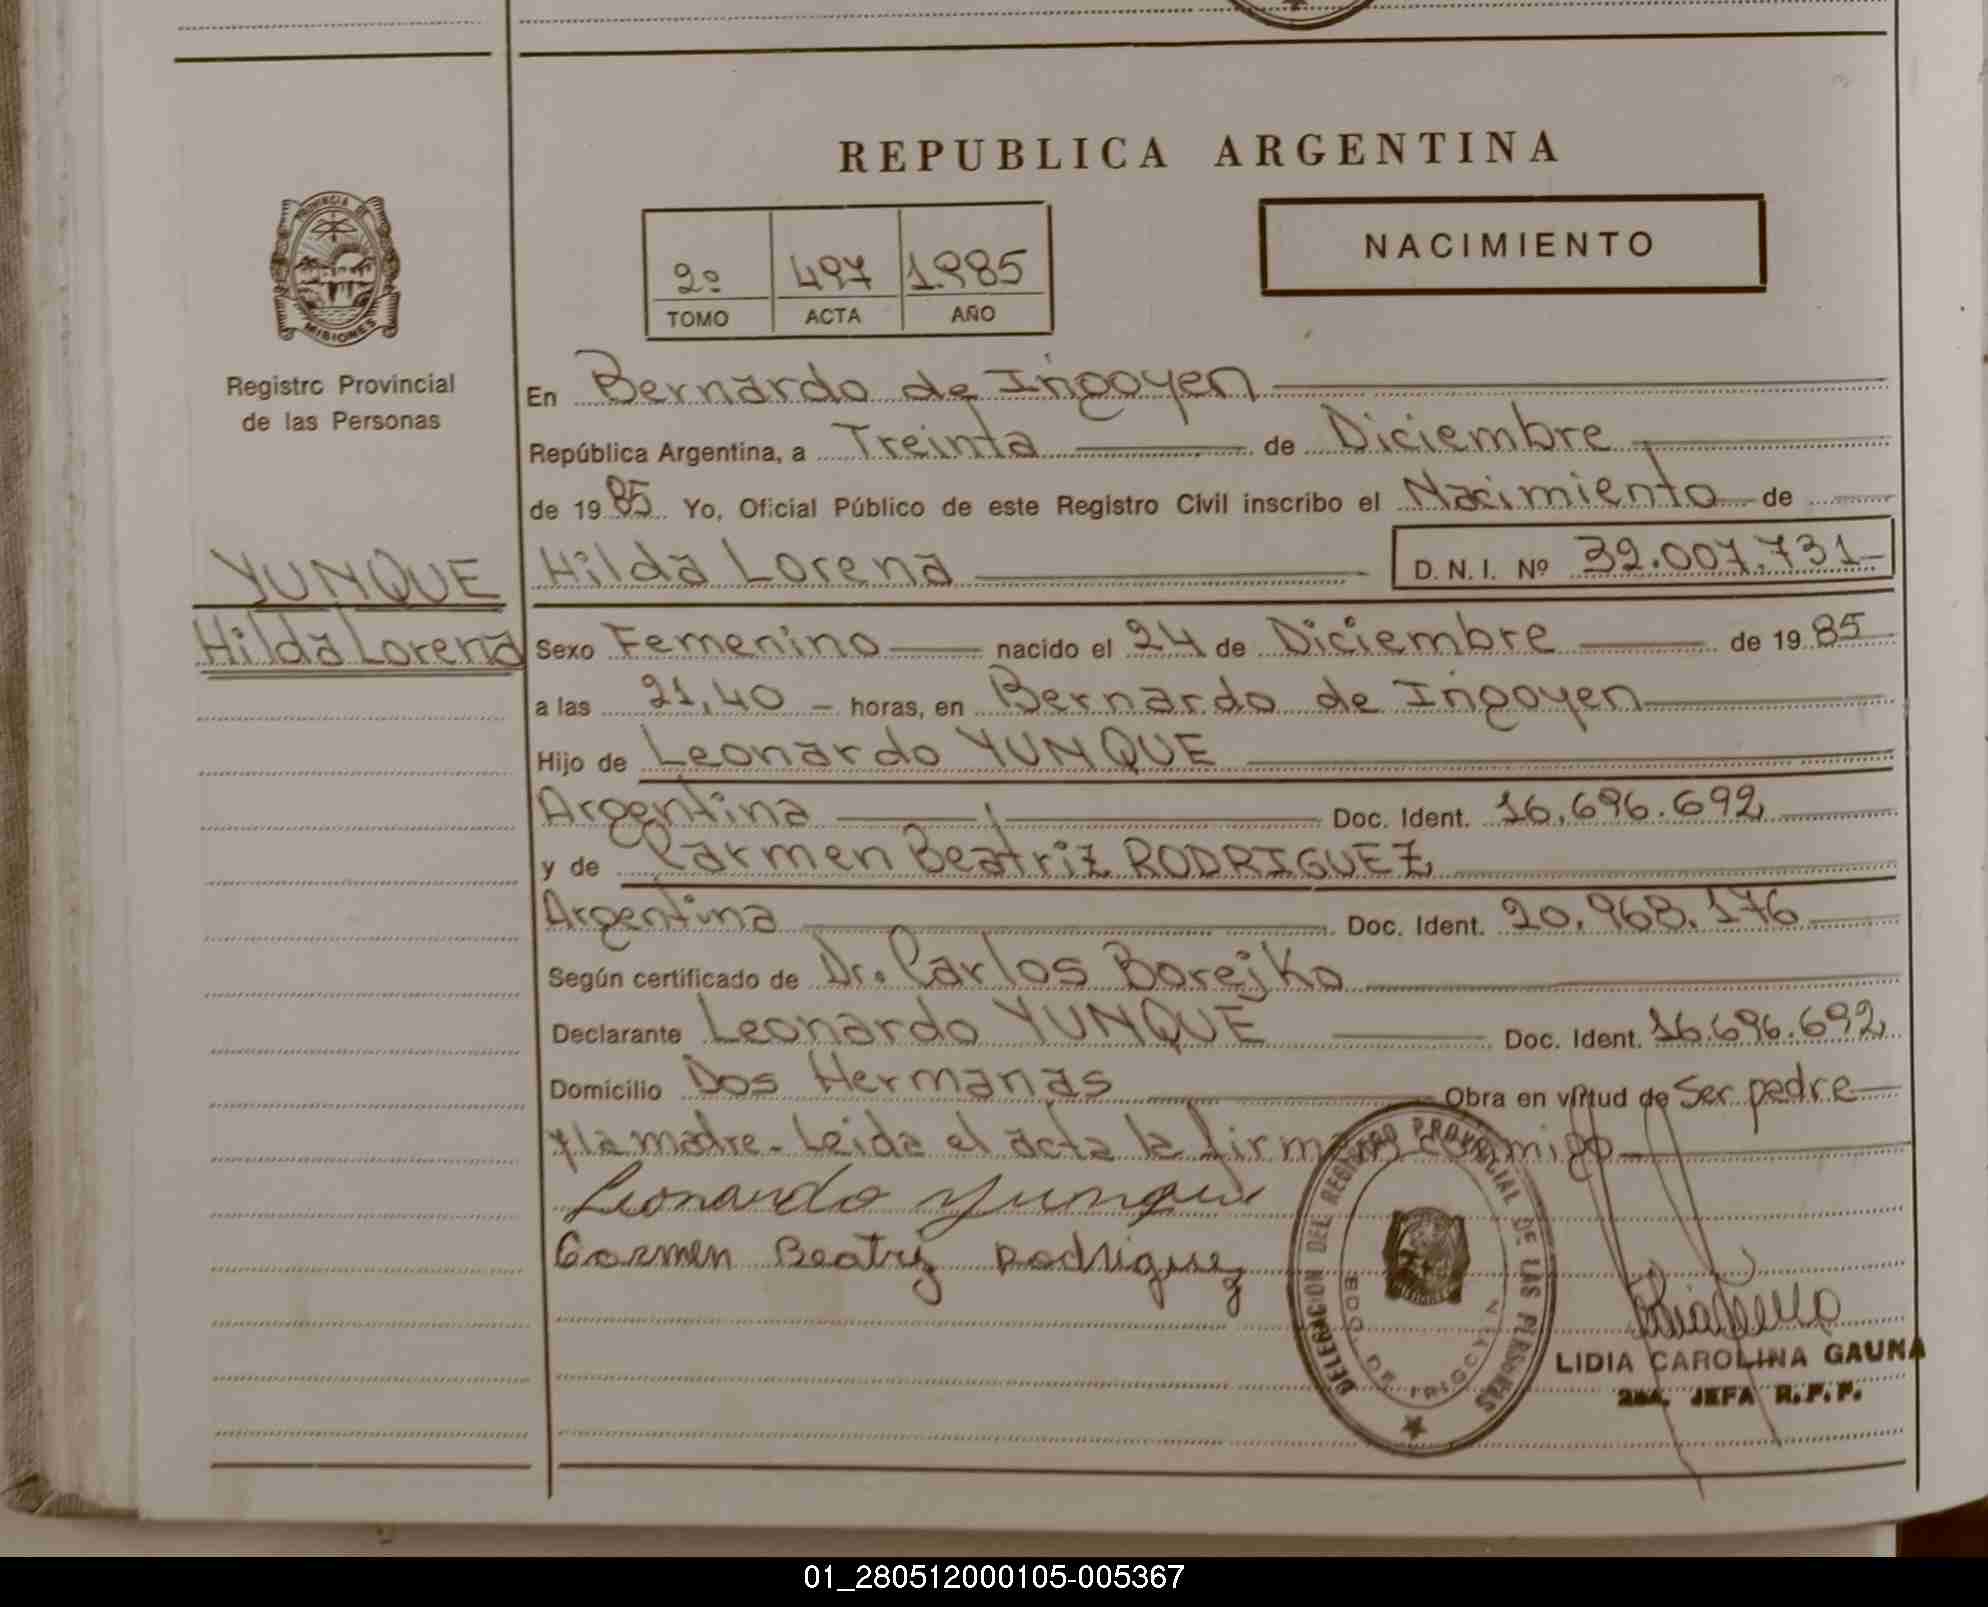 REPUBLICA ARGENTINA
PROVINCIA DE
MISIONES
Registro Provincial
de las Personas
2º 497 1.985
TOMO ACTA AÑO
NACIMIENTO
En Bernardo de Irigoyen
República Argentina, a Treinta de Diciembre
de 19 85 Yo, Oficial Público de este Registro Civil inscribo el Nacimiento de
YUNQUE
Hilda Lorena
Hilda Lorena D. N. I. Nº 32.007.731-
Sexo Femenino nacido el 24 de Diciembre de 19 85
a las 21,40 - horas, en Bernardo de Irigoyen
Hijo de Leonardo YUNQUE
Argentina Doc. Ident. 16.696.692
y de Carmen Beatriz RODRIGUEZ
Argentina Doc. Ident. 20.968.176
Según certificado de Dr. Carlos Borejko
Declarante Leonardo YUNQUE Doc. Ident. 16.696.692
Domicilio Dos Hermanas Obra en virtud de Ser padre
y la madre- Leida el acta la firman conmigo
Leonardo Yunque
Carmen Beatriz Rodriguez
DELEGACION DEL REGISTRO PROVINCIAL DE LAS PERSONAS
BDO. DE IRIGOYEN
LIDIA CAROLINA GAUNA
2da. JEFA R.P.P.
01_280512000105-005367